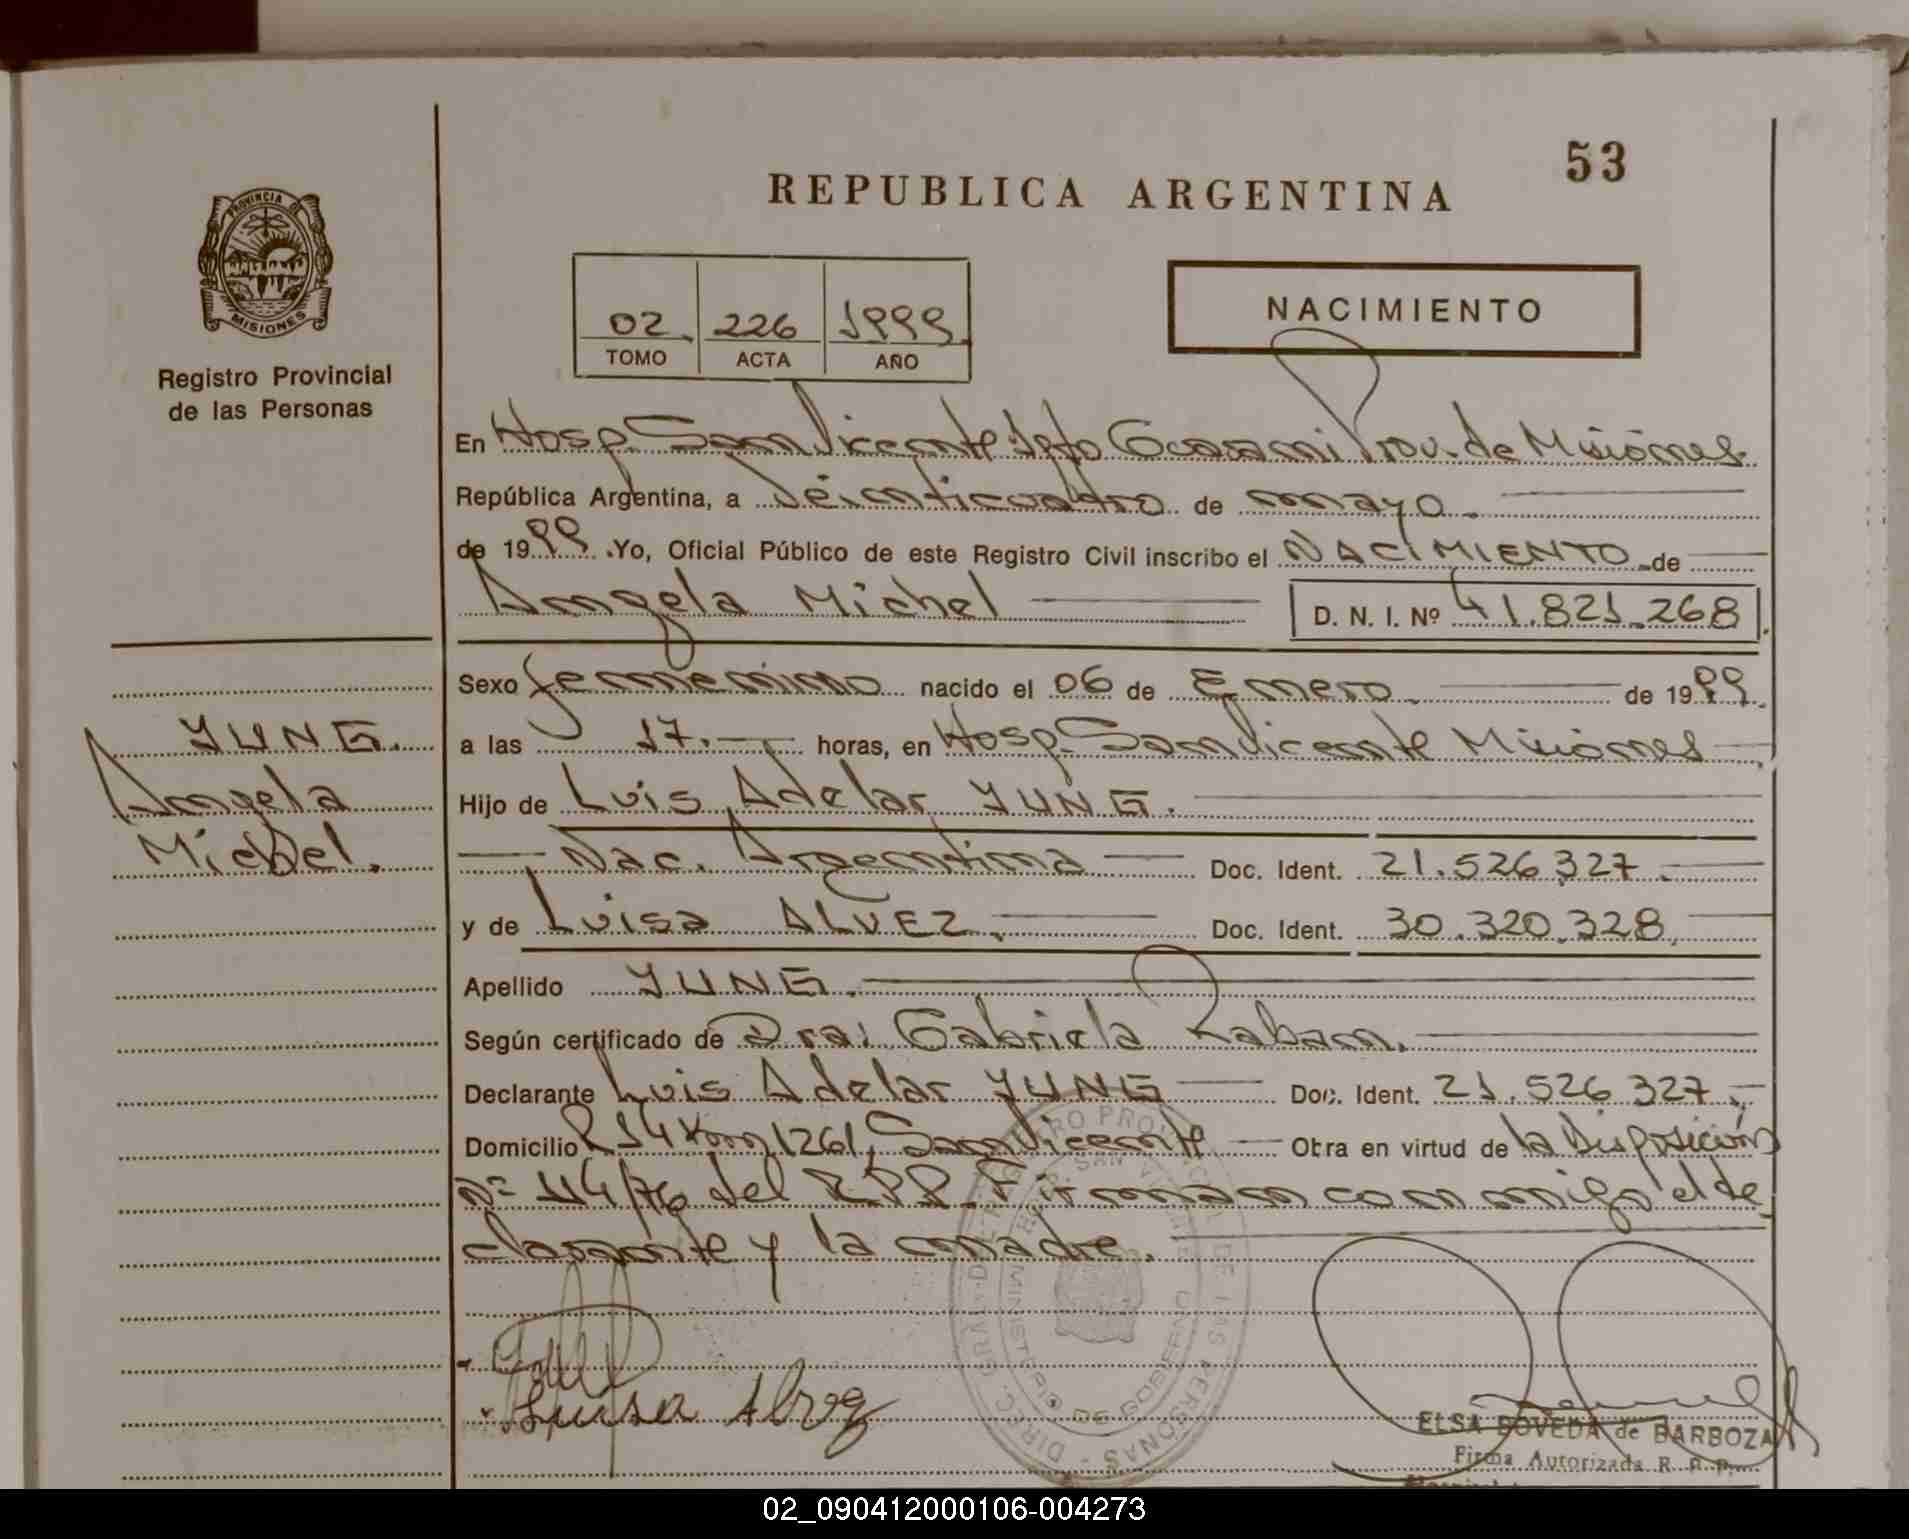 53
REPUBLICA ARGENTINA
PROVINCIA DE
MISIONES
Registro Provincial
de las Personas
02 226 1999
TOMO ACTA AÑO
NACIMIENTO
En Hosp. San Vicente Dpto Guarani Prov. de Misiones
República Argentina, a Veinticuatro de mayo
de 1999. Yo, Oficial Público de este Registro Civil inscribo el NACIMIENTO de
Angela Michel D. N. I. Nº 41.821.268
Sexo femenino nacido el 06 de Enero de 1999
YUNG. a las 17. horas, en Hosp. San Vicente Misiones
Angela Hijo de Luis Adelar YUNG.
Michel. Nac. Argentina Doc. Ident. 21.526.327
y de Luisa ALVEZ. Doc. Ident. 30.320.328
Apellido YUNG.
Según certificado de Dra: Gabriela Raban.
Declarante Luis Adelar YUNG Doc. Ident. 21.526.327
Domicilio R 14 Km 1261, San Vicente Obra en virtud de la Disposición
Nº 114/76 del R.P.P. Firman conmigo el de
clarante y la madre.
DIREC. GRAL. DEL REGISTRO PROVINCIAL DE LAS PERSONAS
HOSP. SAN VICENTE
MINISTERIO DE GOBIERNO
Luisa Alvez
ELSA BOVEDA de BARBOZA
Firma Autorizada R. P. P.
02_090412000106-004273